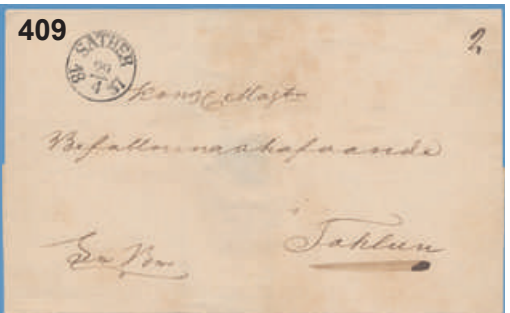 409
SÄTHER
4
18
2
Kongl Majts
Befallningshafvande
i Fahlun